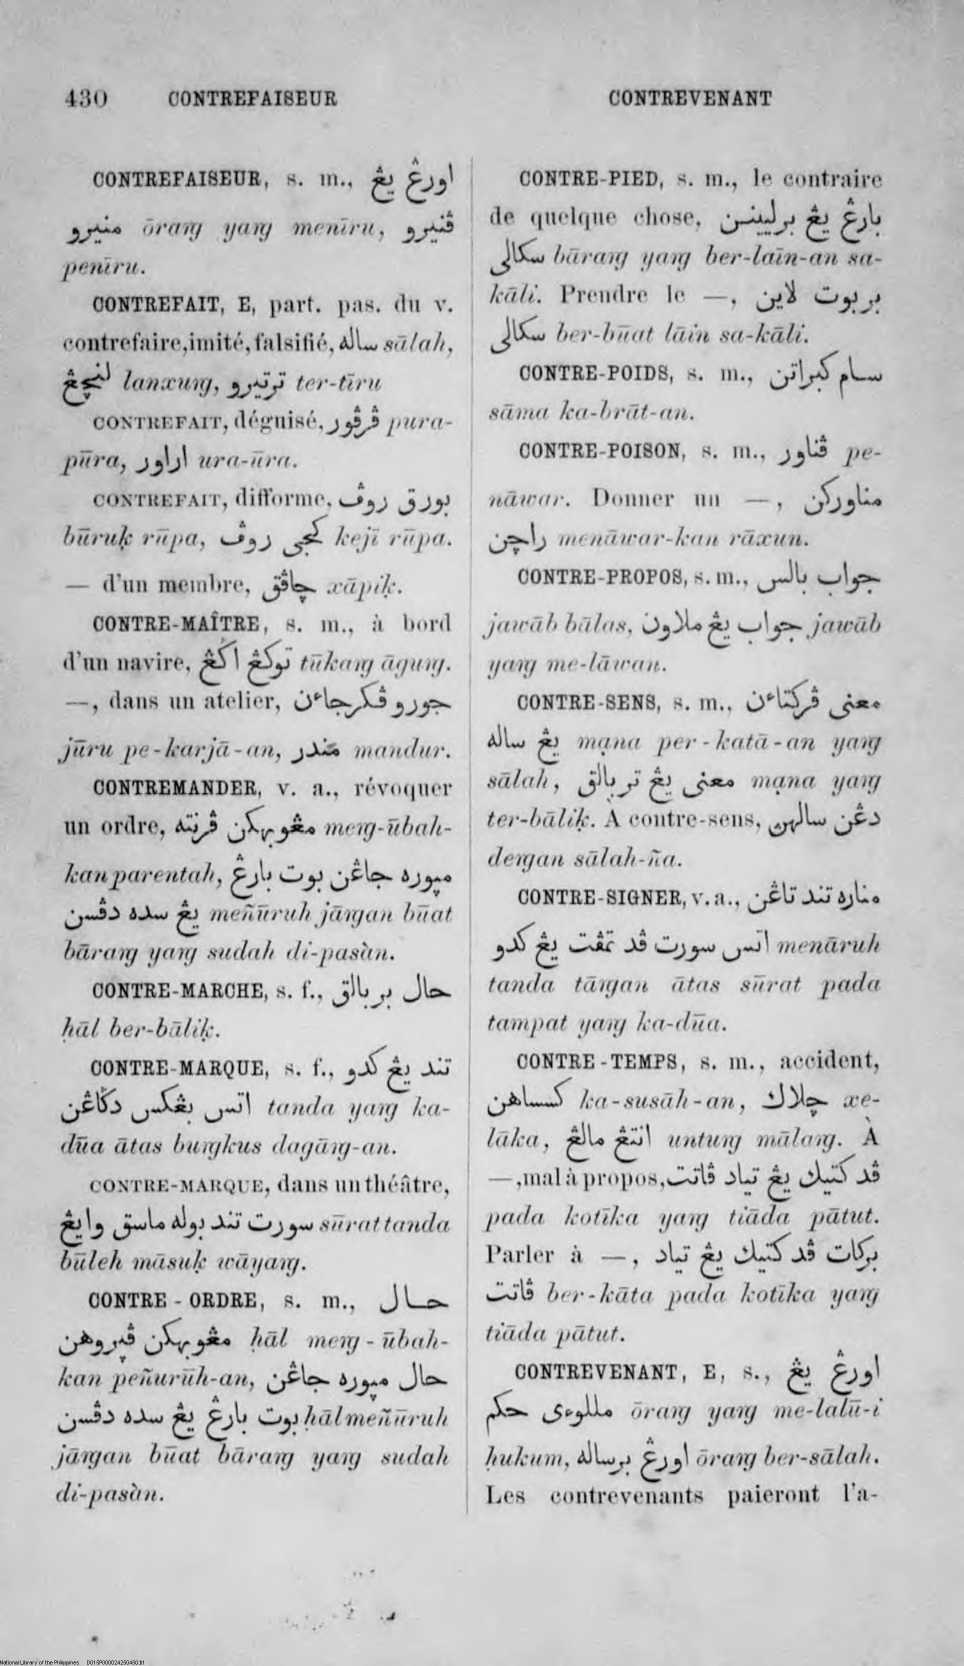 430 CONTREFAISEUR CONTREVENANT
CONTREFAISEUR, s. m., اورڠ يڠ
منيرو ōraŋ yaŋ menīru, ڤنيرو
penīru.
CONTREFAIT, E, part. pas. du v.
contrefaire, imité, falsifié, ساله sālah,
لنچڠ lanxuŋ, ترتيرو ter-tīru
CONTREFAIT, déguisé, ڤرڤور pura-
pūra, اراور ura-ūra.
CONTREFAIT, difforme, بورق روڤ
būruḳ rūpa, كجي روڤ kejī rūpa.
— d'un membre, چاڤق xāpiḳ.
CONTRE-MAÎTRE, s. m., à bord
d'un navire, توكڠ اݢڠ tūkaŋ āguŋ.
—, dans un atelier, جورو ڤكرجاءن
jūru pe-karjā-an, مندر mandur.
CONTREMANDER, v. a., révoquer
un ordre, مڠوبهكن ڤرنته meŋ-ūbah-
kan parentah, مپوره جاڠن بوت بارڠ
يڠ سده دڤسن meñūruh jāŋan būat
bāraŋ yaŋ sudah di-pasàn.
CONTRE-MARCHE, s. f., حال بربالق
ḥāl ber-bāliḳ.
CONTRE-MARQUE, s. f., تند يڠ كدو
اتس بڠكس دݢاڠن tanda yaŋ ka-
dūa ātas buŋkus dagāŋ-an.
CONTRE-MARQUE, dans un théâtre,
سورت تند بوله ماسق وايڠ sūrat tanda
būleh māsuḳ wāyaŋ.
CONTRE-ORDRE, s. m., حال
مڠوبهكن ڤپروهن ḥāl meŋ-ūbah-
kan peñurūh-an, حال مپوره جاڠن
بوت بارڠ يڠ سده دڤسن ḥāl meñūruh
jāŋan būat bāraŋ yaŋ sudah
di-pasàn.
CONTRE-PIED, s. m., le contraire
de quelque chose, بارڠ يڠ برلايينن
سكالي bāraŋ yaŋ ber-laīn-an sa-
kāli. Prendre le —, بربوت لاين
سكالي ber-būat lāin sa-kāli.
CONTRE-POIDS, s. m., سام كبراتن
sāma ka-brāt-an.
CONTRE-POISON, s. m., ڤناور pe-
nāwar. Donner un —, مناوركن
راچن menāwar-kan rāxun.
CONTRE-PROPOS, s. m., جواب بالس
jawāb bālas, جواب يڠ ملاون jawāb
yaŋ me-lāwan.
CONTRE-SENS, s. m., معنى ڤركتاءن
يڠ ساله mạna per-katā-an yaŋ
sālah, معنى يڠ تربالق mạna yaŋ
ter-bāliḳ. A contre-sens, دڠن سالهن
deŋan sālah-ña.
CONTRE-SIGNER, v. a., مناره تند تاڠن
اتس سورت ڤد تمڤت يڠ كدو menāruh
tanda tāŋan ātas sūrat pada
tampat yaŋ ka-dūa.
CONTRE-TEMPS, s. m., accident,
كسساهن ka-susāh-an, چلاك xe-
lāka, انتڠ مالڠ untuŋ mālaŋ. À
—, mal à propos, ڤد كتيك يڠ تياد ڤاتت
pada kotīka yaŋ tiāda pātut.
Parler à —, بركات ڤد كتيك يڠ تياد
ڤاتت ber-kāta pada kotīka yaŋ
tiāda pātut.
CONTREVENANT, E, s., اورڠ يڠ
مللوءي حكم ōraŋ yaŋ me-lalū-i
ḥukum, اورڠ برساله ōraŋ ber-sālah.
Les contrevenants paieront l'a-
National Library of the Philippines